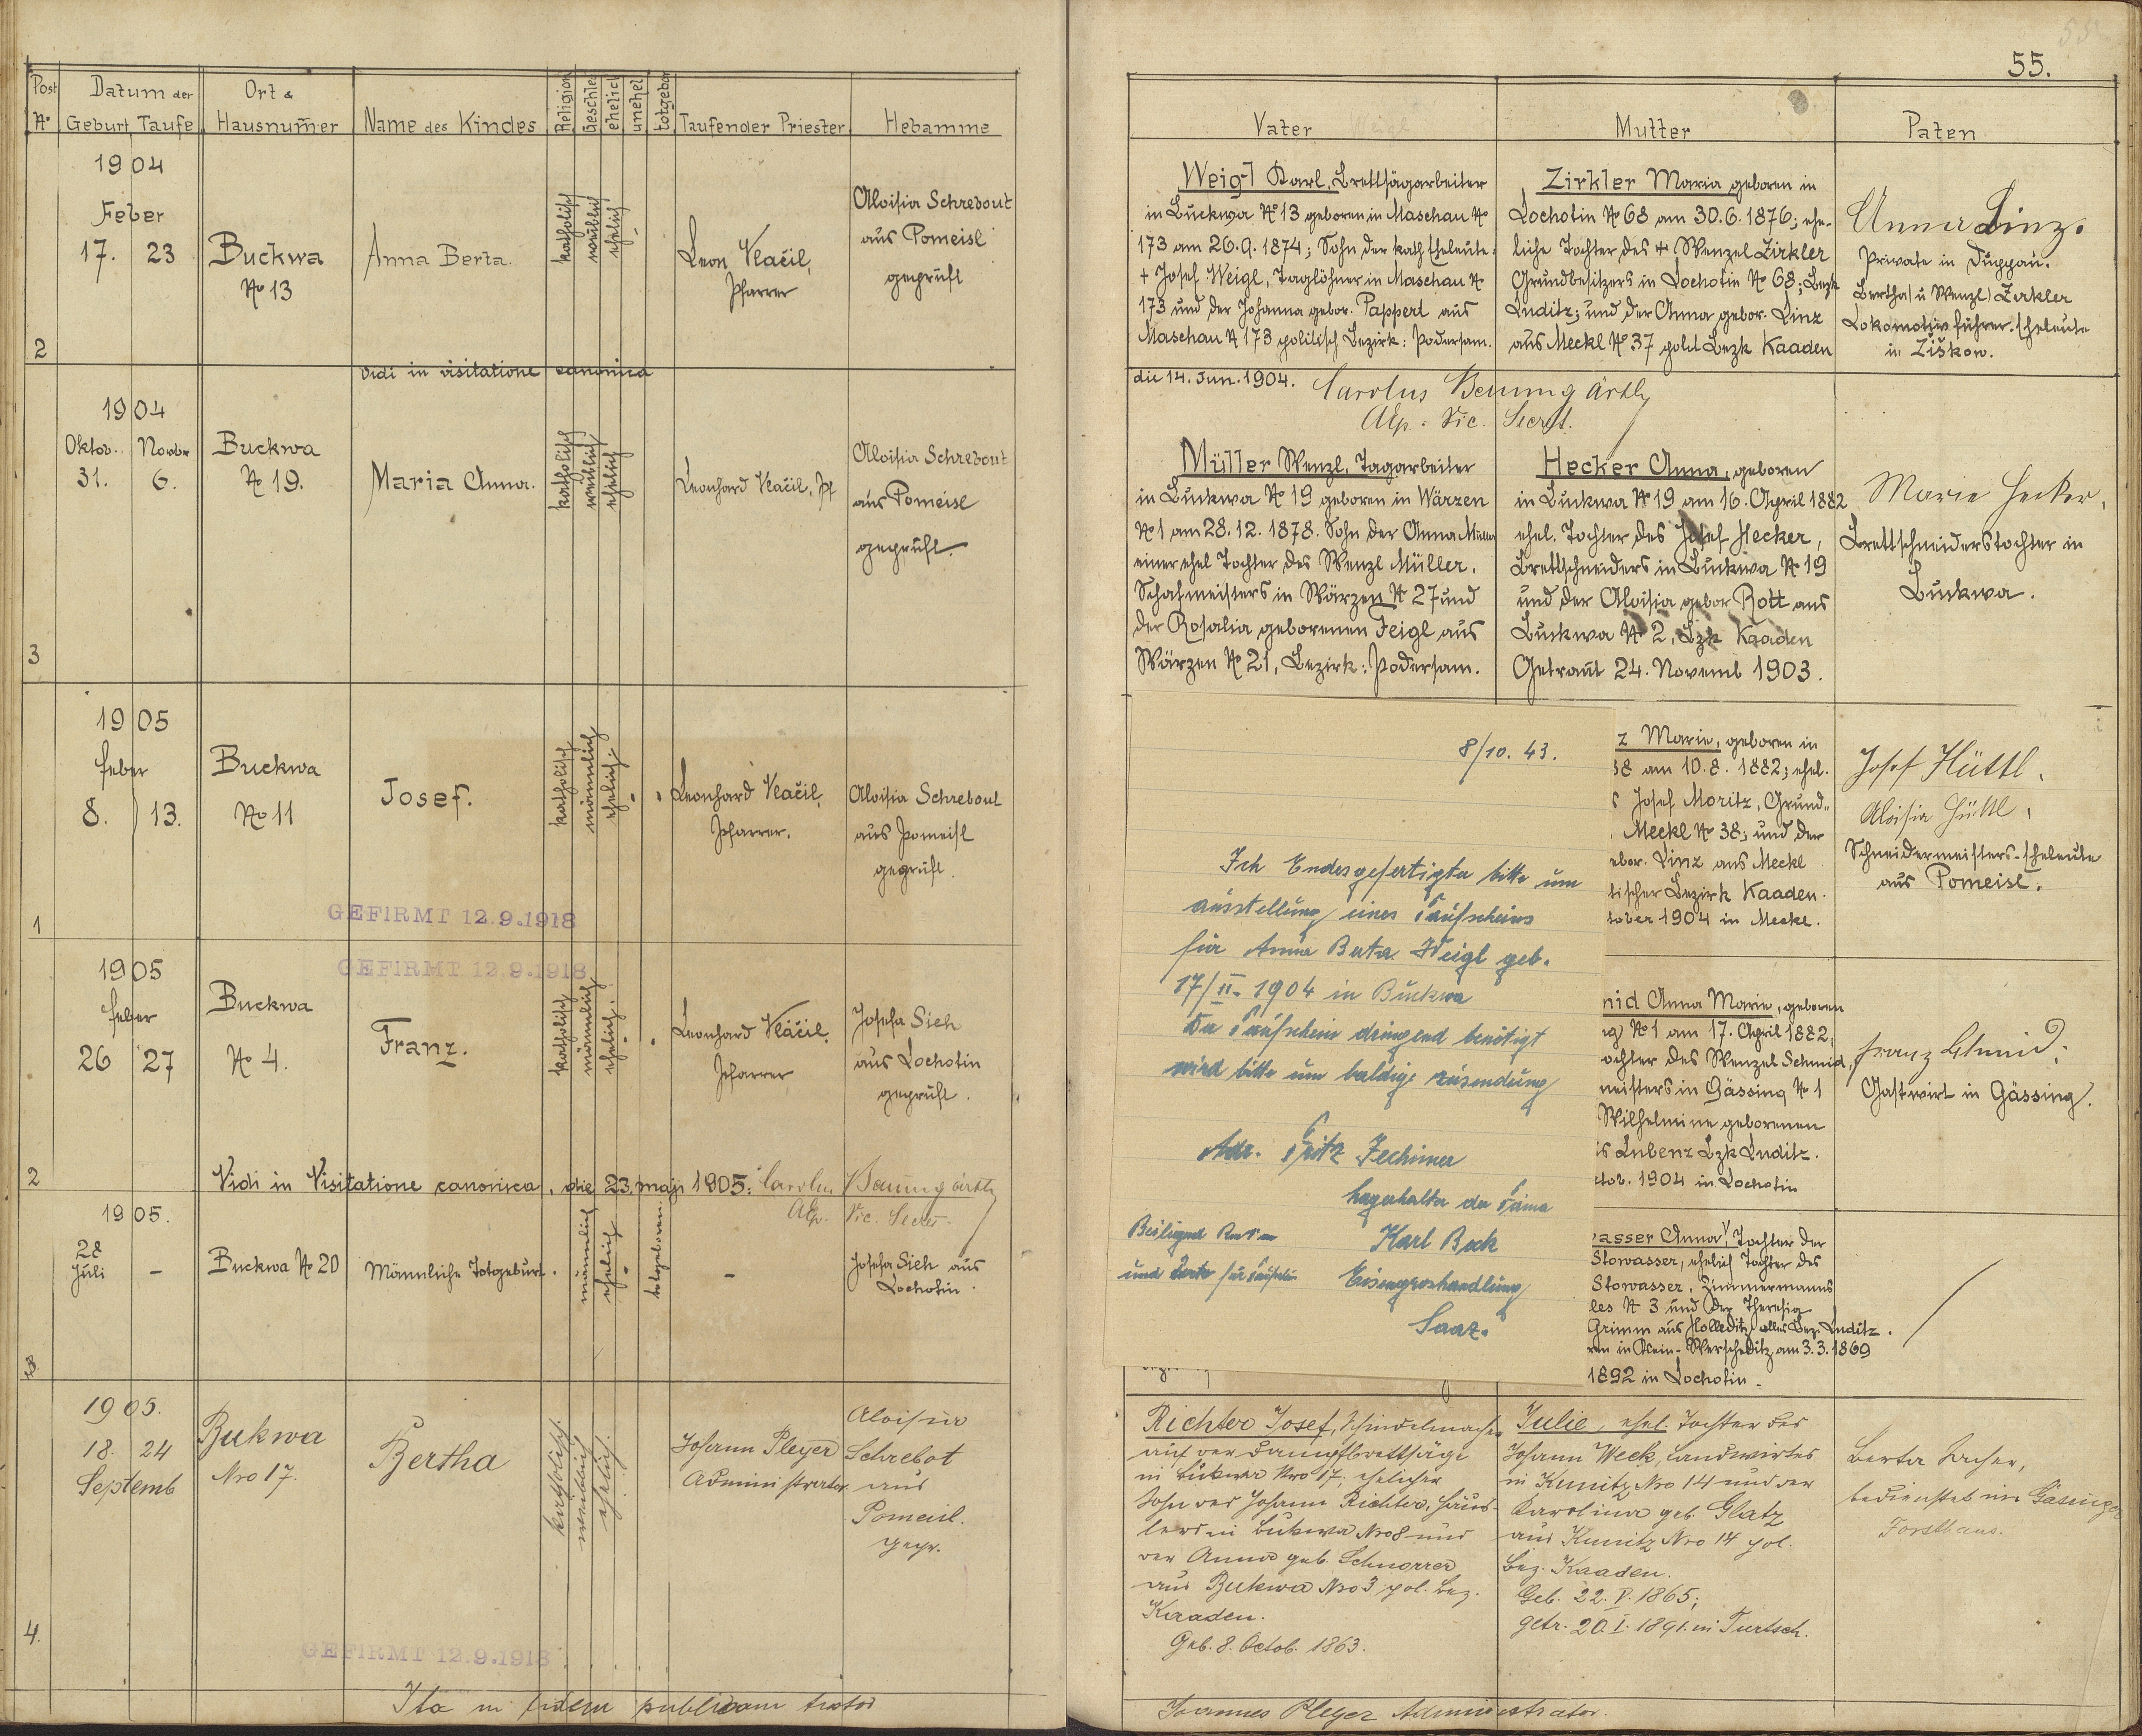 55.
Post No
Datum der
Geburt Taufe
Ort & Hausnummer
Name des Kindes
Religion
Geschle
ehelich
unehel
totgebor
Taufender Priester
Hebamme
Vater
Mutter
Paten
1904
Feber
17. 23
2
Buckwa
No 13
Anna Berta.
katholisch
weiblich
ehelich
Leon Vlačil,
Pfarrer
Aloisia Schrebout
aus Pomeisl
geprüft
Weigl Karl, Brettsägarbeiter
in Buckwa No 13 geboren in Maschau No
173 am 26.9.1874; Sohn der kath Eheleute:
+ Josef Weigl, Taglöhner in Maschau No
173 und der Johanna gebor. Pappert aus
Maschau N 173 politisch Bezirk: Podersam.
Zirkler Maria geboren in
Lochotin No 68 am 30.6.1876; ehe-
liche Tochter des + Wenzel Zirkler
Grundbesitzers in Lochotin No 68; Bezk
Luditz; und der Anna gebor. Linz
aus Meckl No 37 polit Bezk Kaaden
Anna Linz.
Private in Duppau.
Bertha u Wenzl Zirkler
Lokomotivführer-Eheleute
in Žiškow.
Vidi in visitatione canonica
die 14. Jun. 1904. Carolus Baumgärtl
Alp. Vic. Secret.
1904
Oktob. Novbr
31. 6.
3
Buckwa
No 19.
Maria Anna.
katholisch
weiblich
ehelich
Leonhard Vlačil, Pf
Aloisia Schrebout
aus Pomeisl
geprüft.
Müller Wenzl, Tagarbeiter
in Buckwa No 19 geboren in Wärzen
No 1 am 28.12.1878. Sohn der Anna Müller
einer ehel Tochter des Wenzl Müller.
Schafmeisters in Wärzen No 27 und
der Rosalia geborenen Feigl aus
Wärzen No 21, Bezirk: Podersam.
Hecker Anna, geboren
in Buckwa No 19 am 16. April 1882
ehel. Tochter des Josef Hecker,
Brettschneiders in Buckwa No 19
und der Aloisia gebor Rott aus
Buckwa No 2, Bzk Kaaden
Getraut 24. Novemb 1903.
Marie Hecker,
Brettschneiderstochter in
Buckwa.
1905
Feber
8. 13.
1
Buckwa
No 11
Josef.
katholisch
männlich
ehelich
Leonhard Vlačil,
Pfarrer.
Aloisia Schrebout
aus Pomeisl
geprüft.
GEFIRMT 12.9.1918
z Marie, geboren in
38 am 10.8.1882; ehel.
s Josef Moritz, Grund-
Meckl No 38; und der
ebor. Linz aus Meckl
tischer Bezirk Kaaden.
tober 1904 in Meckl.
Josef Hüttl,
Aloisia Hüttl,
Schneidermeisters-Eheleute
aus Pomeisl.
1905
Feber
26 27
2
GEFIRMT 12.9.1918
Buckwa
No 4.
Franz.
katholisch
männlich
ehelich
Leonhard Vlačil,
Pfarrer
Josefa Sieh
aus Lochotin
geprüft.
nid Anna Marie, geboren
ng No 1 am 17. April 1882,
ochter des Wenzel Schmid,
meisters in Gässing No 1
Wilhelmine geborenen
is Lubenz Bzk Luditz.
ctob. 1904 in Lochotin
Franz Schmid,
Gastwirt in Gässing.
Vidi in Visitatione canonica, die 23. maji 1905: Carolus Baumgärtl
Alp. Vic. Secret.
1905.
28
Juli
-
3
Buckwa No 20
Männliche Totgeburt.
männlich
ehelich
totgeboren
-
Josefa Sieh aus
Lochotin.
asser Anna, Tochter der
Stowasser, ehelich Tochter des
Stowasser, Zimmermanns
les N 3 und der Theresia
Grimm aus Holleditz alles Bez. Luditz.
ren in Klein-Werscheditz am 3.3.1869
1892 in Lochotin
8/10. 43.
Ich Endesgefertigter bitte um
ausstellung eines Taufscheins
für Anna Berta Weigl geb.
17/II. 1904 in Buckwa
Da Taufschein dringend benötigt
wird bitte um baldige zusendung
Adr. Fritz Zechimer
Lagerhalter der Firma
Karl Beck
Eisengroshandlung
Saaz.
Beiliegend
und für Taufschein
1905.
18. 24
Septemb
4.
Bukwa
Nro 17.
Bertha
katholisch
weiblich
ehelich
Johann Pleyer
Administrator
Aloisia
Schrebot
aus
Pomeisl.
gepr.
GEFIRMT 12.9.1918
Richter Josef, Schindelmacher
auf der Dampfbrettsäge
in Bukwa Nro 17; ehelicher
Sohn des Johann Richter, Häus-
lers in Bukwa Nro 8 und
der Anna geb. Schnorrer
aus Bukwa Nro 3 pol. Bez.
Kaaden.
Geb. 8. Octob. 1863.
Julie, ehel. Tochter des
Johann Weck, Landwirtes
in Kunitz Nro 14 und der
Karolina geb. Glatz
aus Kunitz Nro 14 pol.
Bez. Kaaden.
Geb. 22. V. 1865;
getr. 20. I. 1891. in Turtsch.
Berta Bacher,
bedienstet im Gäsinger
Forsthaus.
Ita in fidem publicam testor
Joannes Pleyer Administrator.